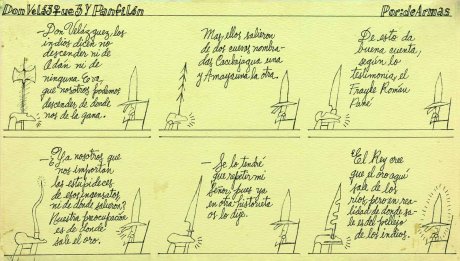 Don Velázquez Y Panfilón
Por: de Armas
-Don Velázquez, los
indios dicen no
descender ni de
Adán ni de
ninguna Eva,
que nosotros podemos
descender de donde
nos de la gana.
Mas, ellos salieron
de dos cuevas nombra-
das Cacibajagua una
y Amayauna la otra.
De esto da
buena cuenta,
según lo
testimonia, el
Frayle Román
Pané
-¿Ya nosotros que
nos importan
las estupideces
de esos insensatos
ni de donde salieron?
Nuestra preocupación
es de donde
sale el oro.
-Se lo tendré
que repetir mi
Señor, pues ya
en otra historieta
os lo dije.
El Rey cree
que el oro aquí
sale de los
ríos pero en rea-
lidad de donde sa-
le es del pellejo
de los indios.